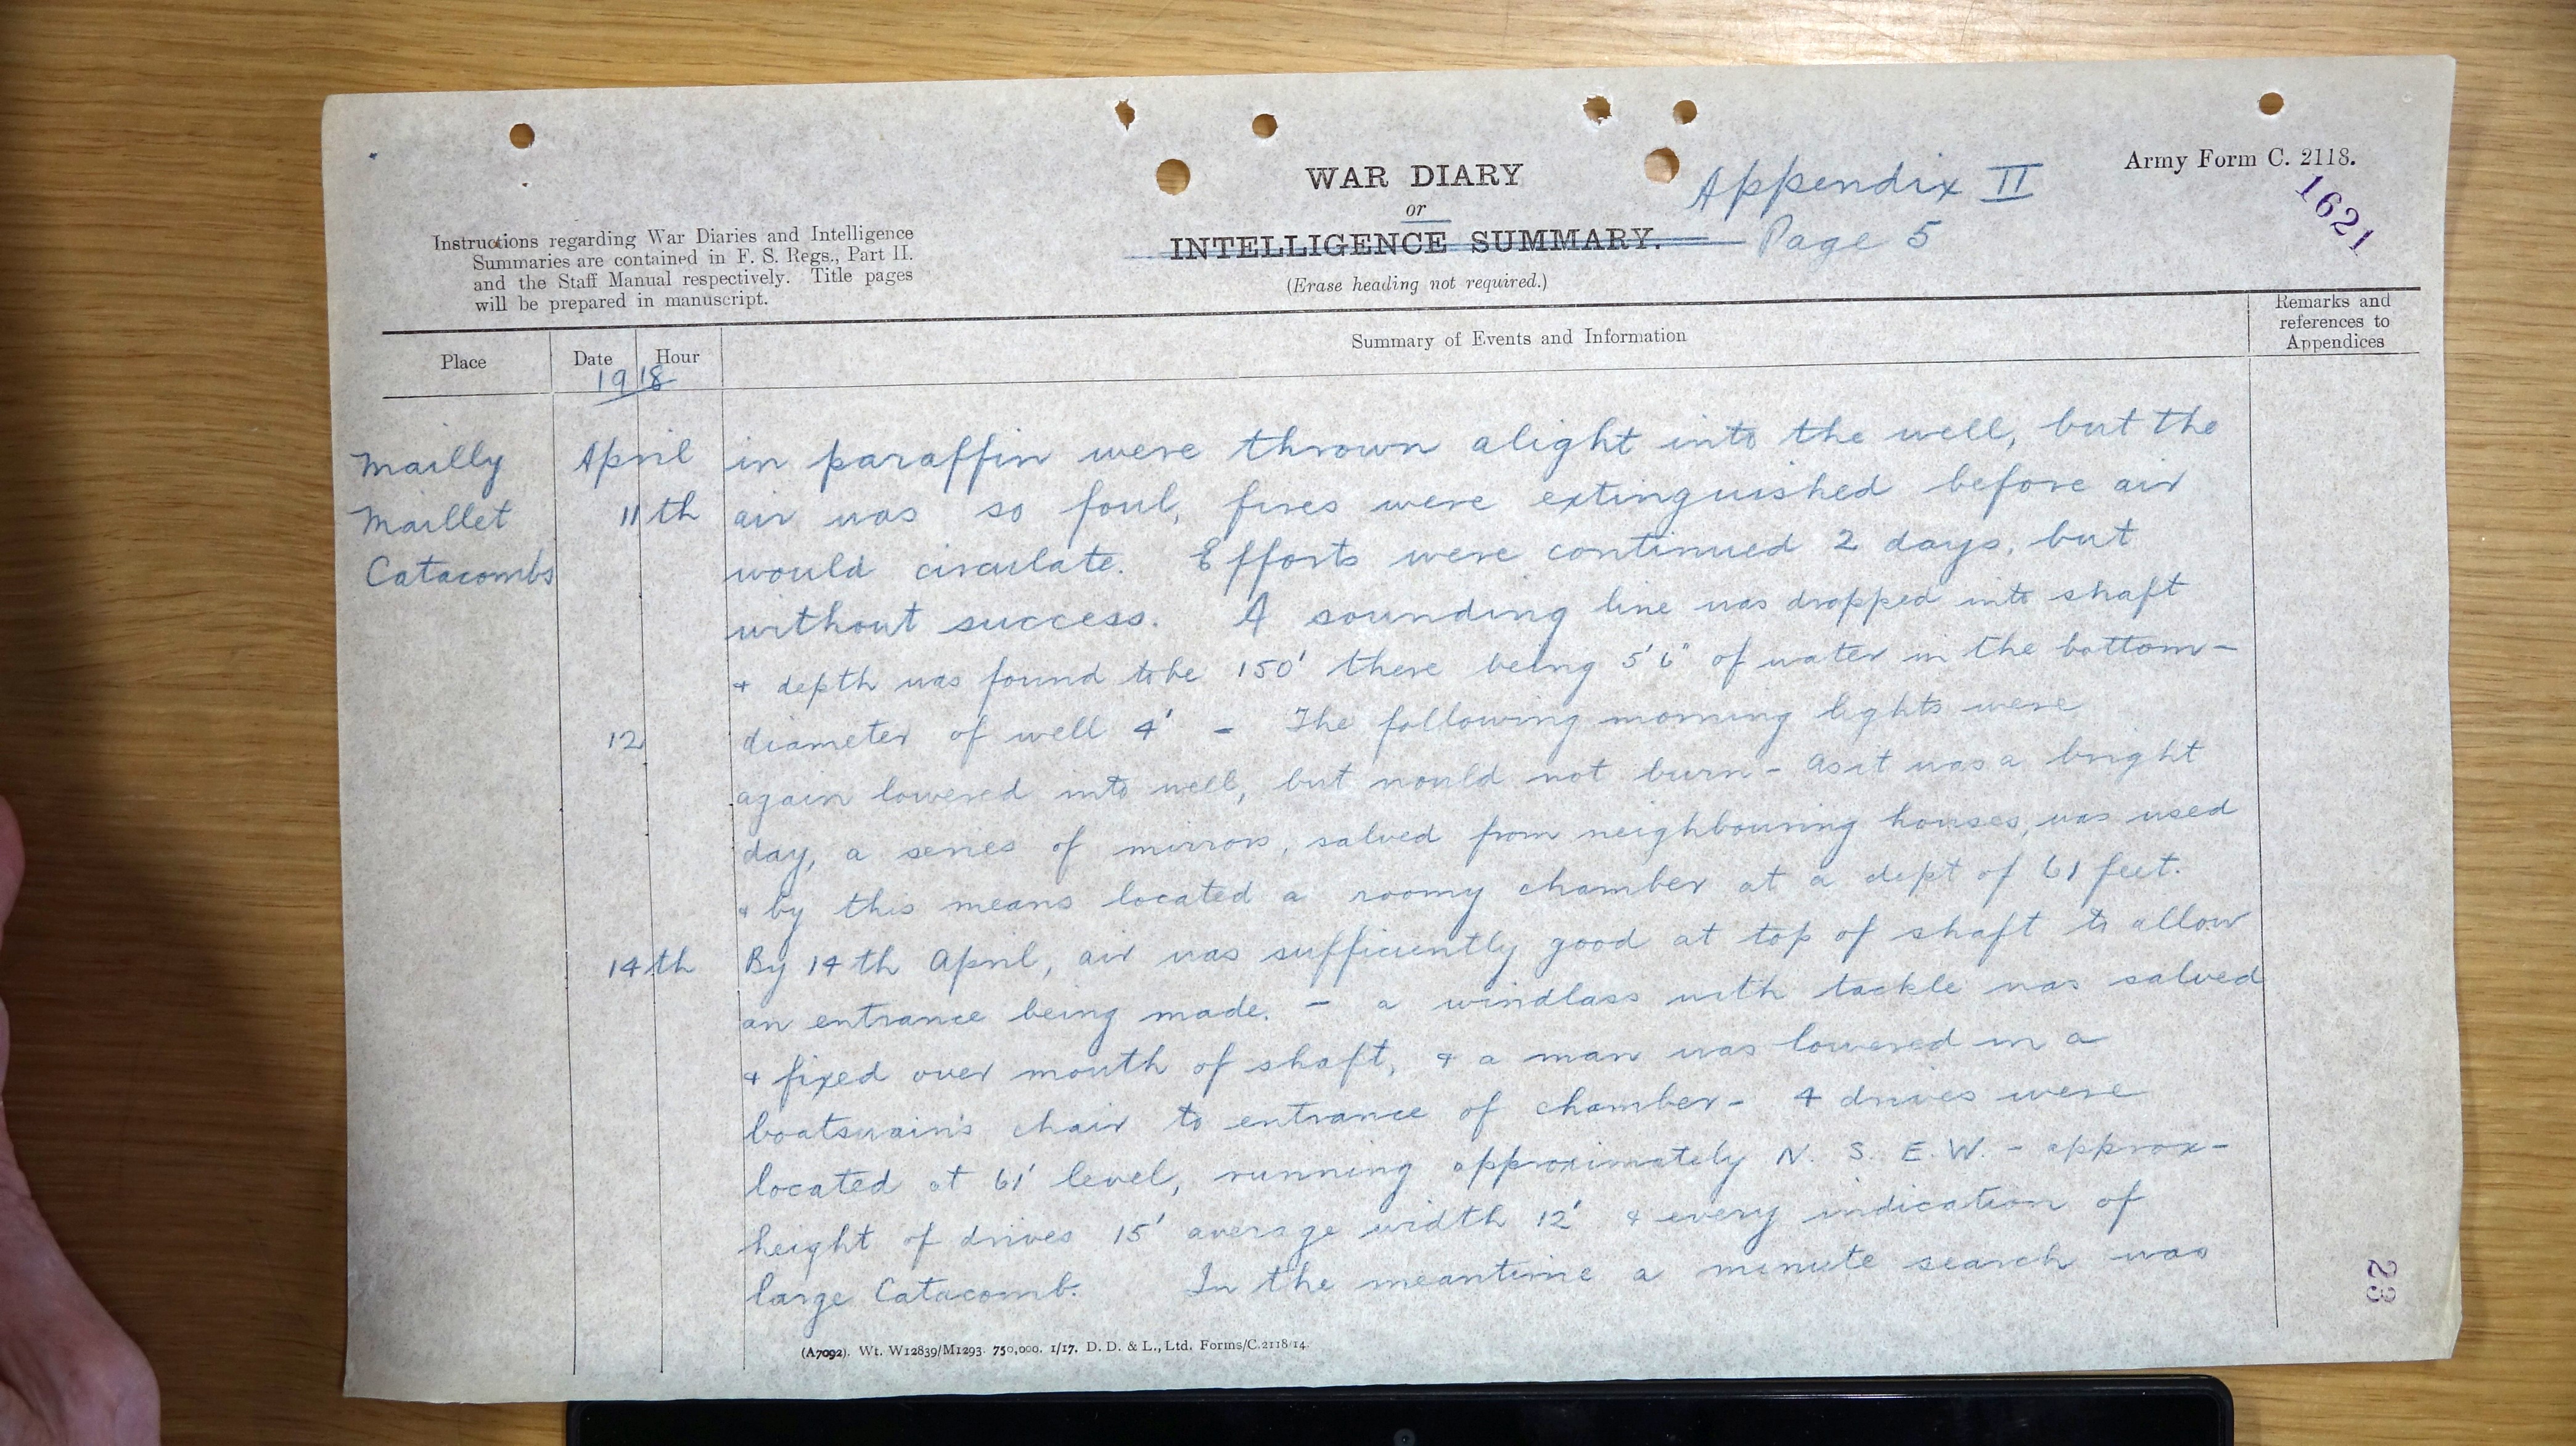 Army Form C. 2118.
1621
WAR DIARY
or
INTELLIGENCE SUMMARY.
(Erase heading not required.)
Appendix II
Page 5
Instructions regarding War Diaries and Intelligence
Summaries are contained in F. S. Regs., Part II.
and the Staff Manual respectively. Title pages
will be prepared in manuscript.
Place
Date
Hour
1918
Summary of Events and Information
Remarks and
references to
Appendices
Mailly
Maillet
Catacombs
April
11th
in paraffin were thrown alight into the well, but the
air was so foul, fires were extinguished before air
would circulate. Efforts were continued 2 days, but
without success. A sounding line was dropped into shaft
& depth was found to be 150' there being 5'6" of water in the bottom-
12
diameter of well 4' - The following morning lights were
again lowered into well, but would not burn - as it was a bright
day, a series of mirrors, salved from neighbouring houses, was used
& by this means located a roomy chamber at a dept of 61 feet.
14th
By 14th April, air was sufficiently good at top of shaft to allow
an entrance being made. - a windlass with tackle was salved
& fixed over mouth of shaft, & a man was lowered in a
boatswain's chair to entrance of chamber - 4 drives were
located at 61' level, running approximately N. S. E. W. - approx-
height of drives 15' average width 12' & every indication of
large Catacomb. In the meantime a minute search was
23
(A7092). Wt. W12839/M1293. 750,000. 1/17. D. D. & L., Ltd. Forms/C.2118/14.